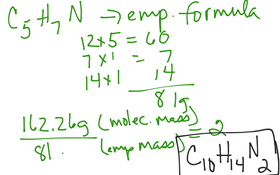 C5H7N → emp. formula
12 x 5 = 60
7 x 1 = 7
14 x 1 14
81g
162.26g (molec. mass) = 2
81. (emp mass)
C10H14N2